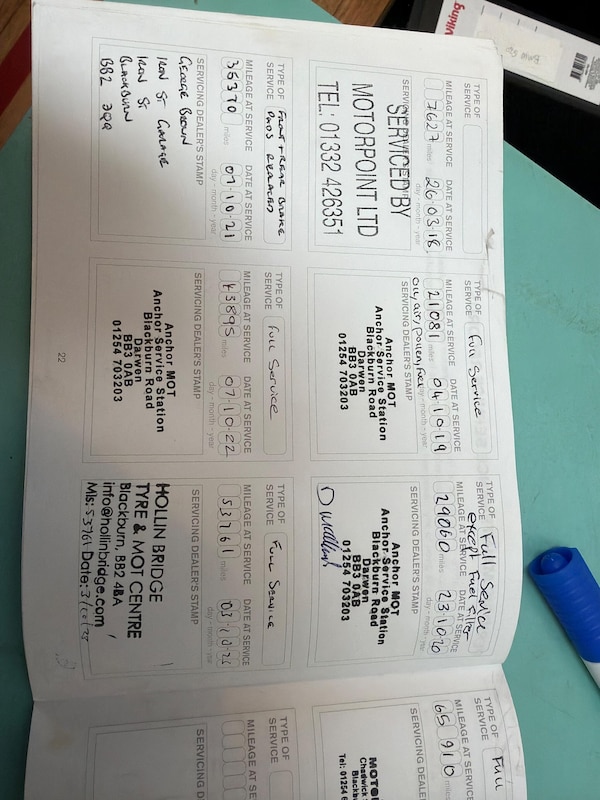 TYPE OF
SERVICE
MILEAGE AT SERVICE DATE AT SERVICE
7627 miles 26 03 18
day - month - year
SERVICING DEALER'S STAMP
SERVICED BY
MOTORPOINT LTD
TEL: 01332 426351
TYPE OF
SERVICE Full Service
MILEAGE AT SERVICE DATE AT SERVICE
21081 miles 04 10 19
day - month - year
SERVICING DEALER'S STAMP
Anchor MOT
Anchor Service Station
Blackburn Road
Darwen
BB3 0AB
01254 703203
TYPE OF
SERVICE Full Service
except Fuel Filter
MILEAGE AT SERVICE DATE AT SERVICE
29060 miles 23 10 20
day - month - year
SERVICING DEALER'S STAMP
Anchor MOT
Anchor Service Station
Blackburn Road
Darwen
BB3 0AB
01254 703203
TYPE OF
SERVICE Front + Rear Brake
Pads Replaced
MILEAGE AT SERVICE DATE AT SERVICE
36370 miles 07 10 21
day - month - year
SERVICING DEALER'S STAMP
George Brown
Iron St Garage
Iron St
Blackburn
TYPE OF
SERVICE Full Service
MILEAGE AT SERVICE DATE AT SERVICE
43895 miles 07 10 22
day - month - year
SERVICING DEALER'S STAMP
Anchor MOT
Anchor Service Station
Blackburn Road
Darwen
BB3 0AB
01254 703203
TYPE OF
SERVICE Full Service
MILEAGE AT SERVICE DATE AT SERVICE
53761 miles
day - month - year
SERVICING DEALER'S STAMP
HOLLIN BRIDGE
TYRE & MOT CENTRE
Blackburn, BB2 4BA
info@hollinbridge.com
Mls: 53761 Date:
22
TYPE OF
SERVICE Full
MILEAGE AT SE
65910
SERVICING DEALE
MOTO
Chadwick S
Blackb
Tel: 01254 6
TYPE OF
SERVICE
MILEAGE AT SE
SERVICING D